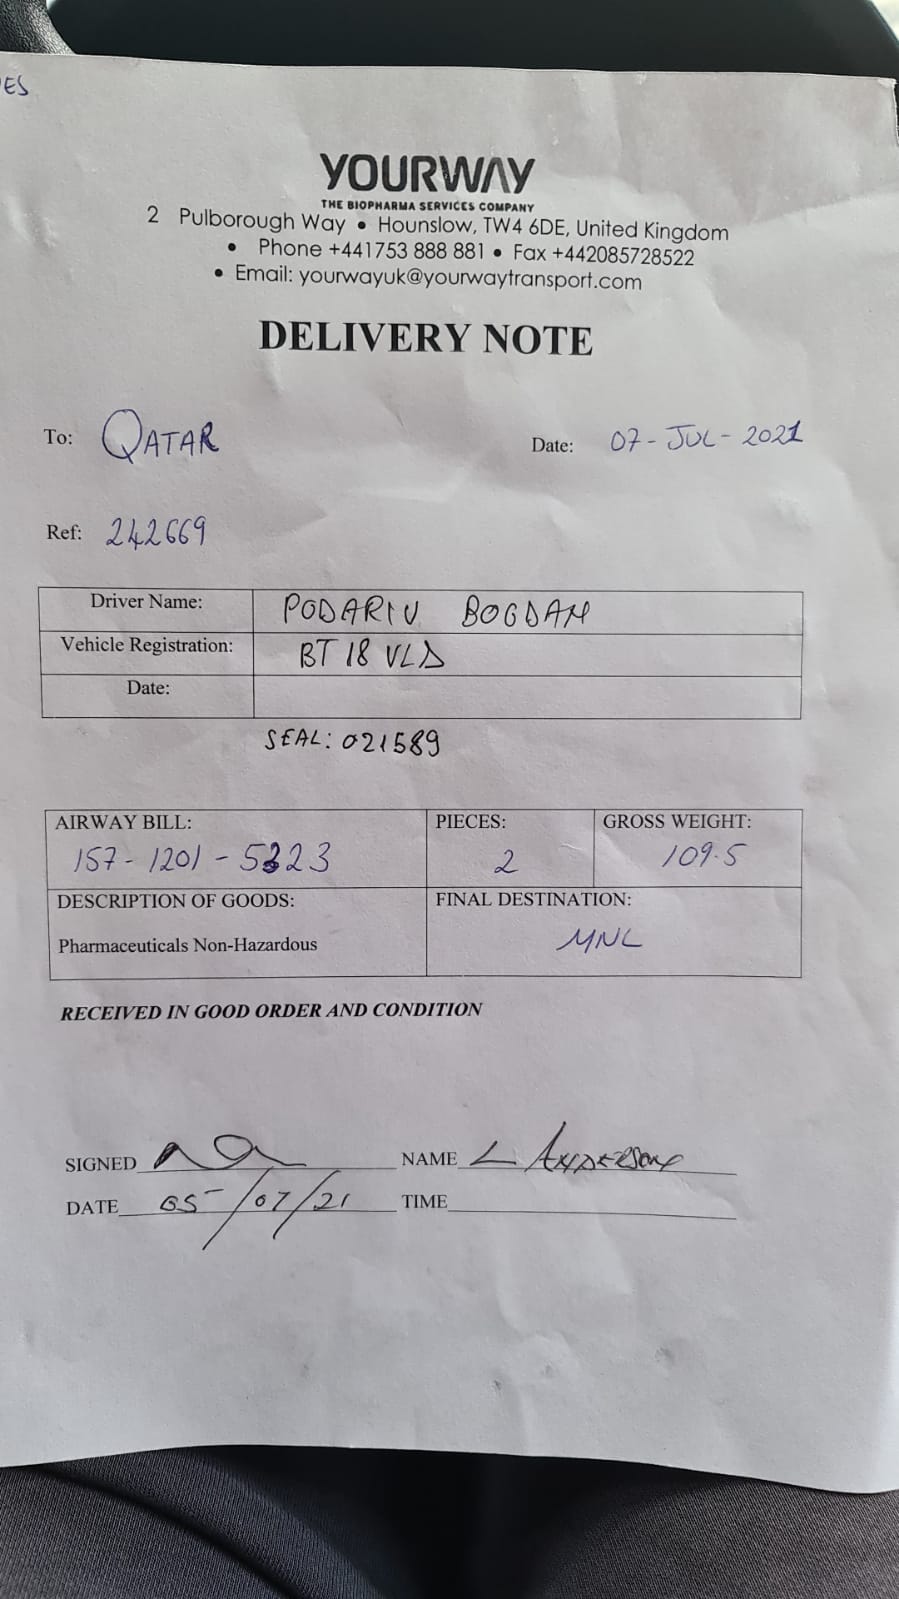 ES
YOURWAY
THE BIOPHARMA SERVICES COMPANY
2 Pulborough Way • Hounslow, TW4 6DE, United Kingdom
• Phone +441753 888 881 • Fax +442085728522
• Email: yourwayuk@yourwaytransport.com
DELIVERY NOTE
To: QATAR Date: 07-JUL-2021
Ref: 242669
Driver Name: PODARIU BOGDAN
Vehicle Registration: BT 18 VLD
Date:
SEAL: 021589
AIRWAY BILL: PIECES: GROSS WEIGHT:
157-1201-5323 2 109.5
DESCRIPTION OF GOODS: FINAL DESTINATION:
Pharmaceuticals Non-Hazardous MNL
RECEIVED IN GOOD ORDER AND CONDITION
SIGNED NAME L ANDERSON
DATE 05/07/21 TIME